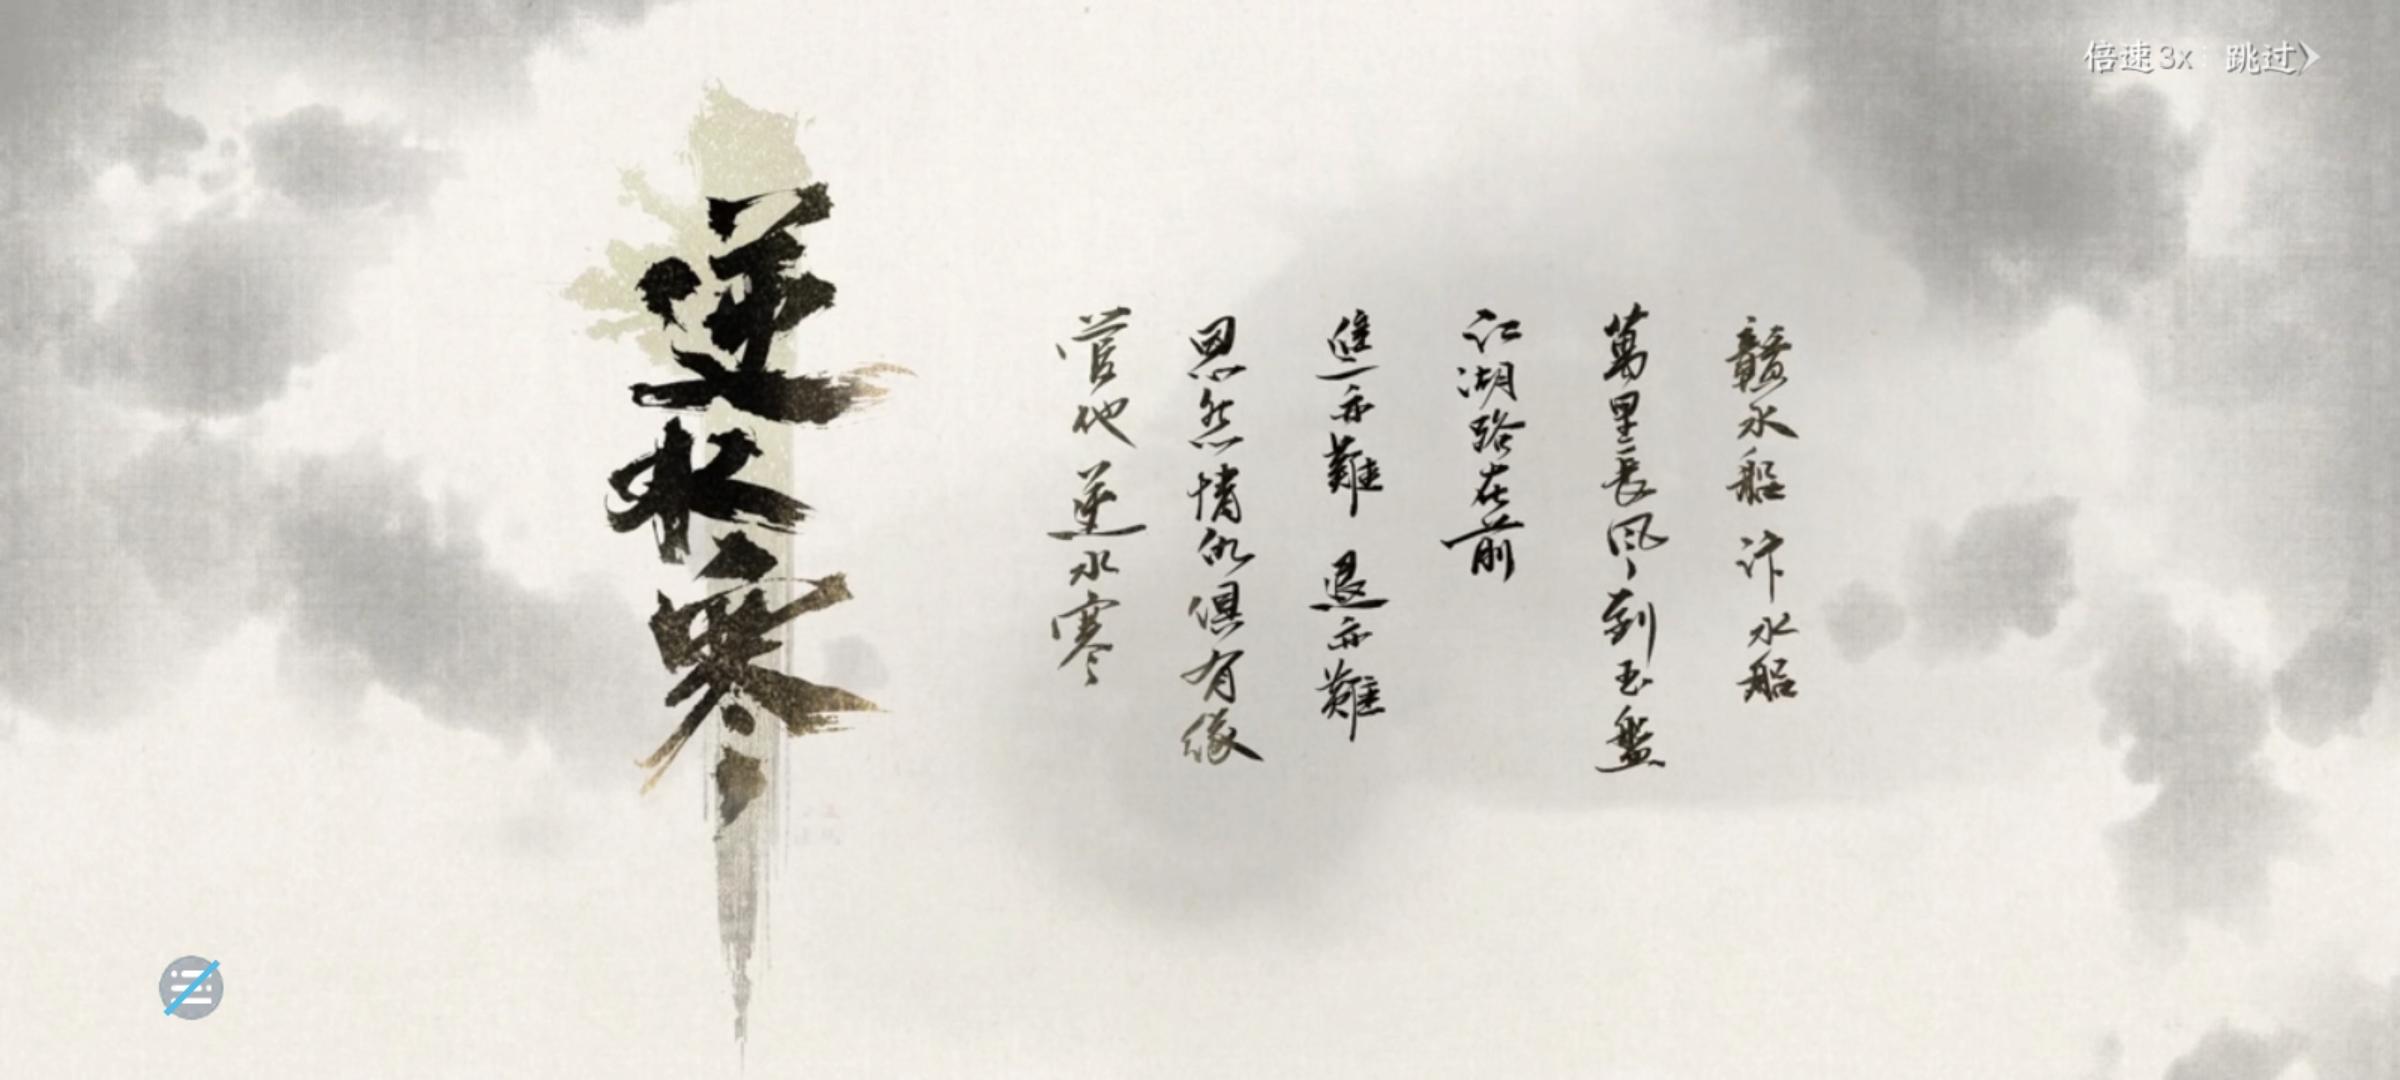 倍速3x 跳过
贛水船 汴水船
萬里長風到玉盤
江湖路在前
進亦難 退亦難
恩怨情仇俱有緣
管他逆水寒
逆水寒